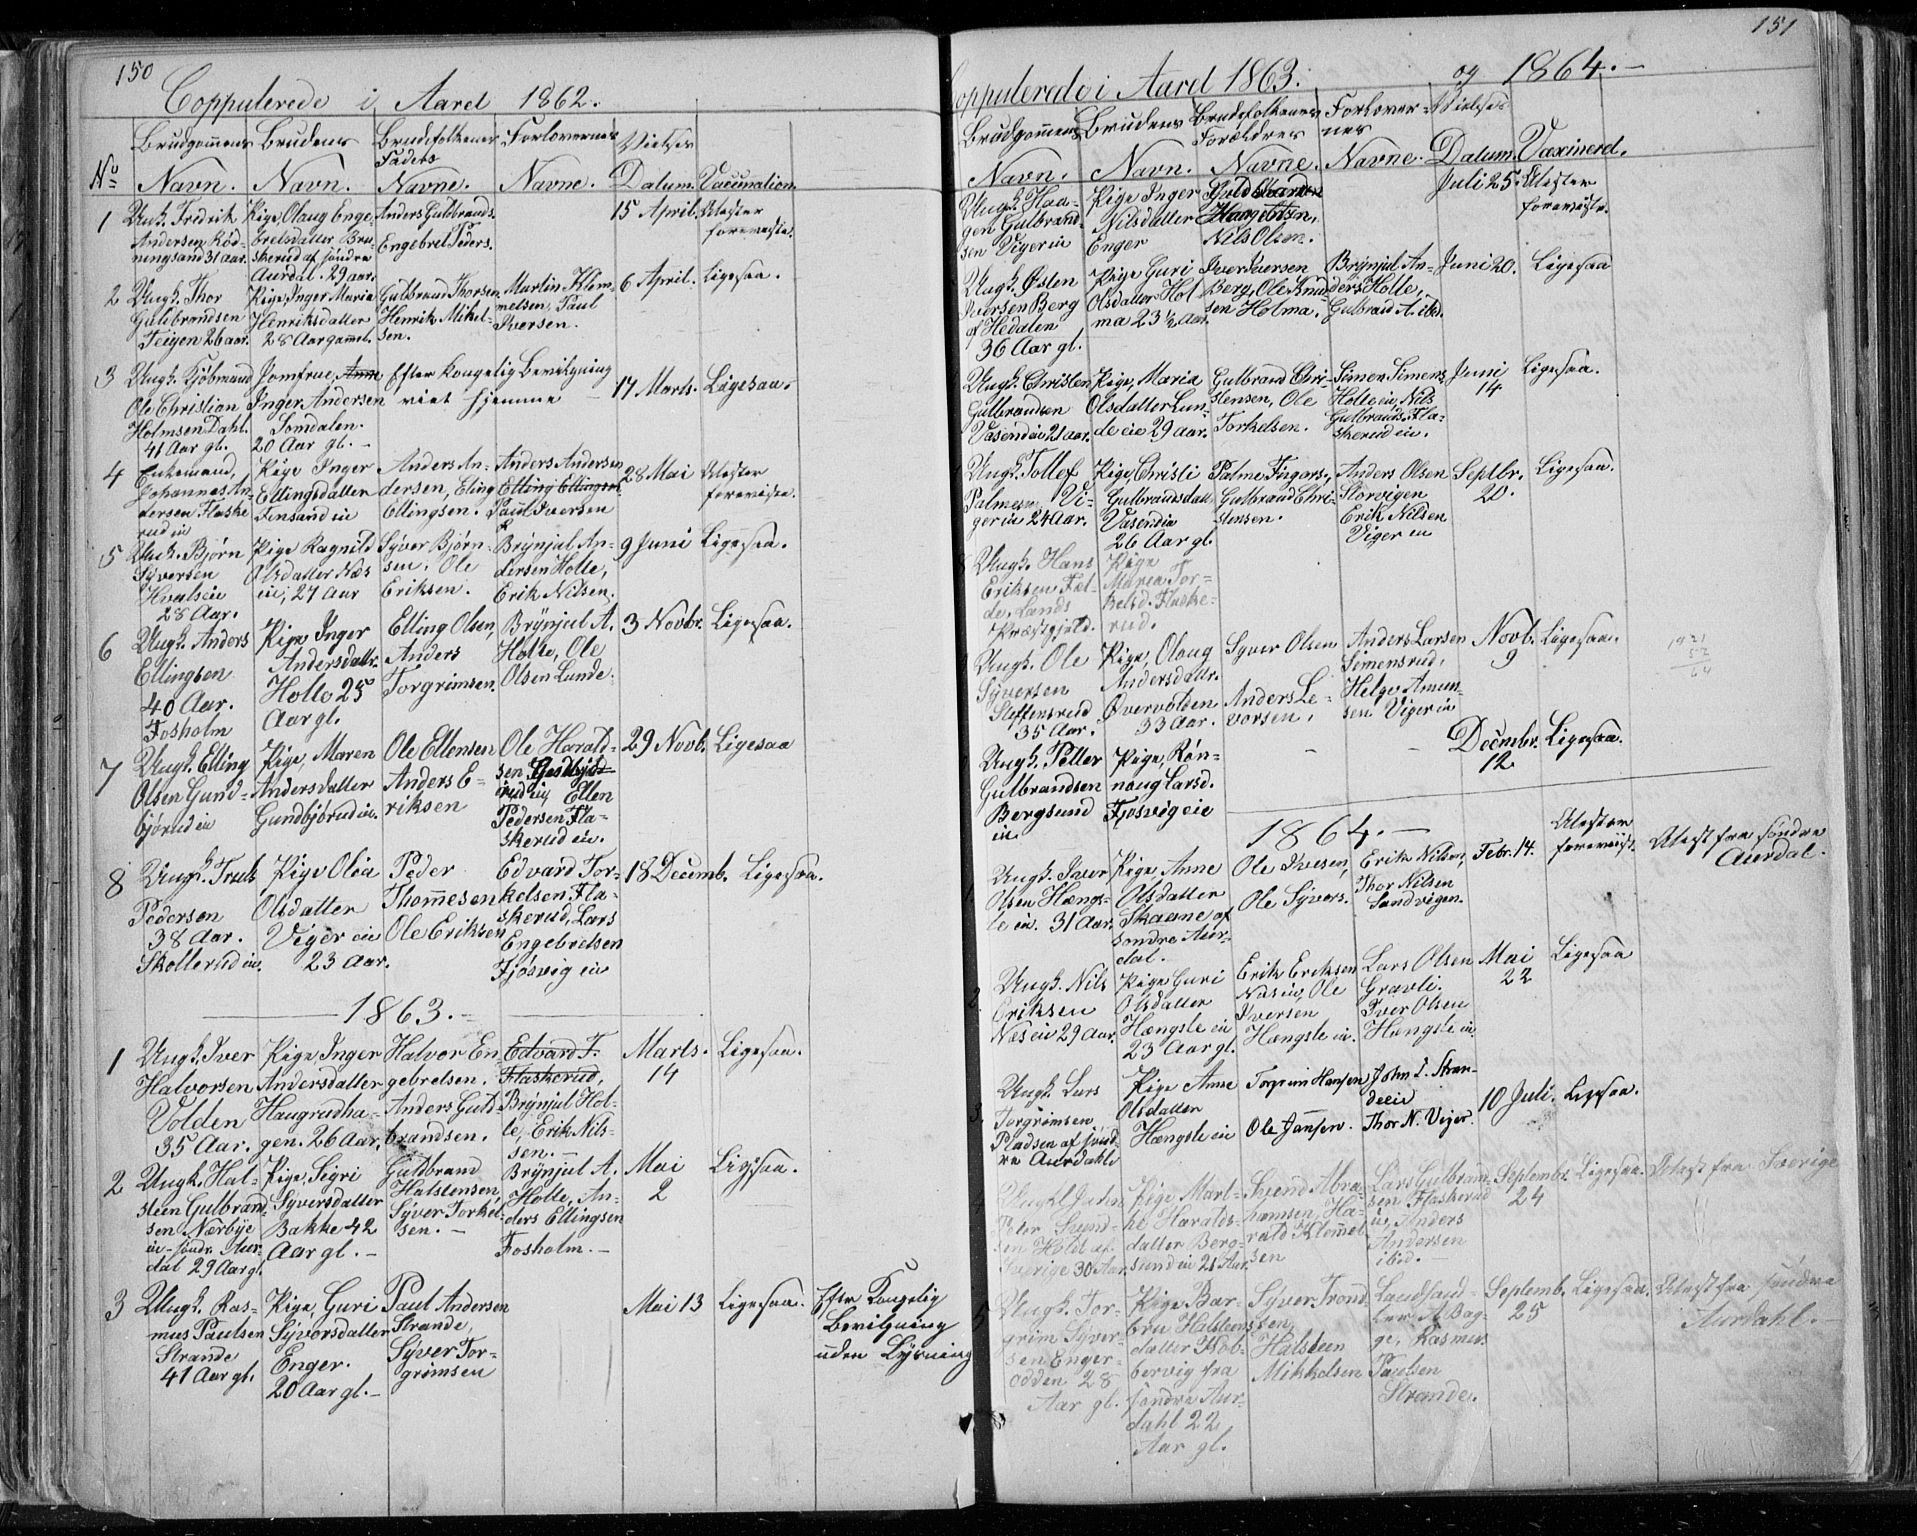 150
Coppulerede i Aaret 1862.
No
Brudgommens Navn.
Brudens Navn.
Brudefolkenes Fadets Navne.
Forlovernes Navne.
Vielses Datum.
Vaccination.
1
Ungk. Fredrik
Andersen Rød-
ningsand 31 aar.
Pige, Olaug Enge-
bretsdatter Bru-
skerud af søndre
Aurdal. 29 aar.
Anders Gulbrands.
Engebret Peders.
15 April.
Atester
foreviste.
2
Ungk. Thor
Gulbrandsen
Teigen 26 aar.
Pige, Inger Maria
Henriksdatter
28 Aar gamel.
Gulbrand Thorsen
Henrik Mikel-
sen.
Martin Klem-
melsen, Paul
Iversen.
6 April.
Ligesaa.
3
Ungk. Kjöbmand
Ole Christian
Holmsen Dahl.
41 Aar gl.
Jomfrue, Anne
Inger Andersen
Tomdalen.
20 Aar gl. -
Efter Kongelig Bevilgning
viet hjemme -
17 Marts.
Ligesaa.
4
Enkemand,
Johannes An-
dersen Flaske
rud eie
Pige Inger
Ellingsdatter
Tensand eie
Anders An-
dersen, Eling
Ellingsen.
Anders Andersen
Elling Ellingsen
Paul Iversen
28 Mai
Atester
foreviste.
5
Ungk. Bjørn
Syversen
Hvalseie
28 Aar.
Pige Ragnild
Olsdatter Næs
eie, 27 aar
Syver Bjørn-
sen. Ole
Eriksen.
Brynjul An-
dersen Holte,
Erik Nilsen.
9 Juni
Ligesaa.
6
Ungk. Anders
Ellingsen
40 Aar.
Fosholm
Pige Inger
Andersdattr.
Holte 25
Aar gl.
Elling Olsen,
Anders
Torgrimsen.
Brynjul A.
Holte, Ole
Olsen Lunde.
3 Novbr.
Ligesaa.
7
Ungk. Elling
Olsen Gund-
bjørud eie
Pige, Maren
Andersdatter
Gundbjørud eie.
Ole Ellensen
Anders E-
riksen
Ole Harald-
sen
rud eie, Ellen
Pedersen Fla-
skerud eie.
29 Novb.
Ligesaa
8
Ungk. Truls
Pedersen
38 Aar.
Skollerud eie.
Pige Olea
Olsdatter
Viger eie
23 Aar.
Peder
Thommesen
Ole Eriksen
Edvard Tor-
kelsen Fla-
skerud, Lars
Engebretsen
Fjösvig eie
18 Decemb.
Ligesaa.
1863.
1
Ungk. Iver
Halvorsen
Volden
35 Aar.
Pige Inger
Andersdatter
Haugrudha-
gen. 26 Aar.
Halvor En-
gebretsen.
Anders Guld-
brandsen.
Edvard T.
Flaskerud,
Brynjul Hol-
te, Erik Nils-
sen.
Marts.
14
Ligesaa.
2
Ungk. Hal-
steen Gulbrand-
sen Nærbye
eie søndr. Aur-
dal 29 Aar gl.
Pige, Sigri
Syversdatter
Bakke 42
Aar gl. -
Guldbrand
Halstensen,
Syver Torkel-
sen. -
Brynjul A.
Holte, An-
ders Ellingsen
Fosholm. -
Mai
2
Ligesaa.
3
Ungk. Ras-
mus Paulsen
Strande
41 Aar gl.
Pige, Guri
Syversdatter
Enger.
20 Aar gl. -
Paul Andersen
Strande,
Syver Tor-
grimsen
Mai 13
Ligesaa.
Efter Kongelig
Bevilgning
uden Lysning
151
Coppulerede i Aaret 1863. og 1864. -
Brudgommens Navn.
Brudens Navn.
Brudefolkenes Forældres Navne.
Forlovernes Navne.
Vielses Datum.
Vaxinerd.
Ungk. Haa-
gen Gulbrand-
sen Viger eie
Pige Inger
Nilsdatter
Enger
Nils Olsen.
Juli 25.
Atester
foreviste.
Ungk. Østen
Iversen Berg
af Hedalen
36 Aar gl.
Pige Guri
Olsdatter Hol
ma 23 1/2 Aar.
Iver Iversen
Berg, Ole Knu-
sen Holma.
Brynjul An-
ders Holte,
Gulbrand A. ibd.
Juni 20.
Ligesaa
Ungk. Christen
Gulbrandsen
Vasend eie 21 aar.
Pige, Maria
Olsdatter Lun-
de eie 29 aar.
Gulbrand Chri-
stensen, Ole
Torkelsen.
Simen Simens.
Holte eie, Nils
Gulbrands. Fla-
skerud eie.
Juni
14
Ligesaa.
Ungk. Tollef
Palmesen Vi-
ger eie 24 Aar.
Pige, Christi
Gulbrandsdatt
Vasendeie
26 Aar gl.
Palme Fingars.,
Gulbrand Chri-
stensen.
Anders Olsen
Storvigen
Erik Nilsen
Viger eie
Septbr.
20.
Ligesaa.
Ungk. Hans
Eriksen Fæl-
de, Lands
Præstgjeld.
Pige
Maria Tor-
kelsd. Flaske-
rud.
Ungk. Ole
Syversen
Steffensrud
35 Aar.
Pige, Olaug
Andersdattr.
Øvervolden
33 Aar.
Syver Olsen
Anders Le-
vorsen,
Anders Larsen
Simensrud,
Helge Amun-
sen Viger eie
Novb.
9
Ligesaa.
Ungk. Petter
Gulbrandsen
Bergsund
eie.
Pige, Røn-
naug Larsd.
Fjosvig eie
Decembr.
12
Ligesaa.
1864. -
Ungk. Iver
Olsen Hængs-
le eie. 31 Aar.
Pige, Anne
Olsdatter
Skavne af
søndre Aur-
dal.
Ole Ivesen,
Ole Syvers.
Erik Nilsen,
Thor Nilsen
Sandvigen.
Febr. 14.
Atester
foreviist.
Atest fra søndre
Aurdal.
2.
Ungk. Nils
Eriksen
Nes eie 29 Aar.
Pige Guri
Olsdatter
Hængsle eie
23 Aar gl.
Erik Eriksen
Nes eie, Ole
Iversen
Hængsle eie.
Lars Olsen
Gravli.
Iver Olsen
Hængsle eie
Mai
22
Ligesaa
3.
Ungk. Lars
Torgrimsen,
Pladsen af sønd-
re Aurdahl
Pige Anne
Olsdatter
Hængsle eie
Torgrim Hansen
Ole Jansen.
John L. Stran-
deeie
Thor N. Viger.
10 Juli.
Ligesaa.
4
Ungkl. John
Peter Svend-
sen Holdt af
Sverige 30 Aar.
Pige Mart-
he Harals-
datter Berg-
sund eie 21 Aar.
Svend Abra-
hamsen, Ha-
rald Klemmet
sen
Lars Gulbran-
sen Flaskerud
eie, Anders
Andersen
ibid.
Septembr.
24
Ligesaa.
Atest fra Sverige
5
Ungk. Tor-
grim Syver-
sen Enger-
odden 28
Aar gl.
Pige Bar-
bru Halsteens-
datter Kob-
bervig fra
søndre Aur-
dahl 22
Aar gl.
Syver Trond-
sen,
Halsteen
Mikkelsen
Landhand-
ler A. Bag-
ge, Rasmus
Paulsen
Strande.
Septemb.
25
Ligesaa.
Atest fra søndre
Aurdahl. -